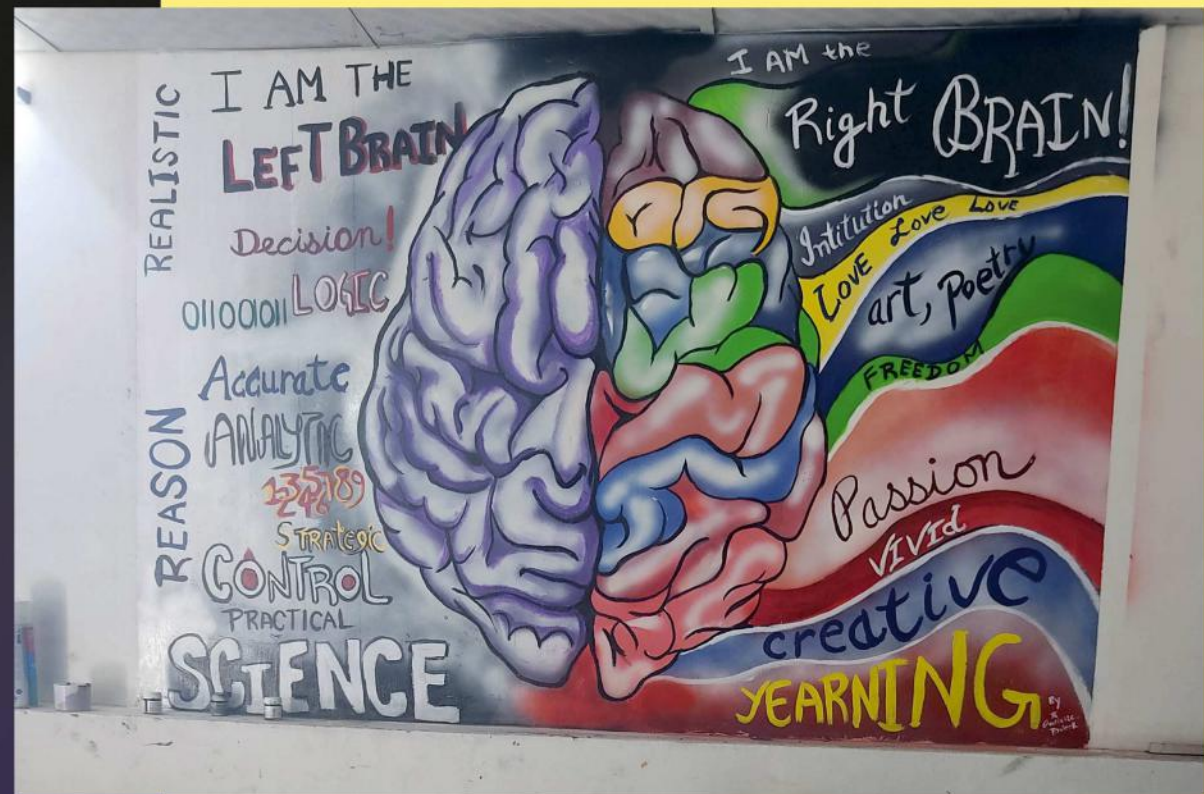 REALISTIC
REASON
I AM THE
LEFT BRAIN
Decision!
LOGIC
01100011
Accurate
ANALYTIC
STRATEGIC
CONTROL
PRACTICAL
SCIENCE
I AM the
Right BRAIN!
Intitution
LOVE Love LOVE
art, Poetry
FREEDOM
Passion
VIVId
creative
YEARNING
By